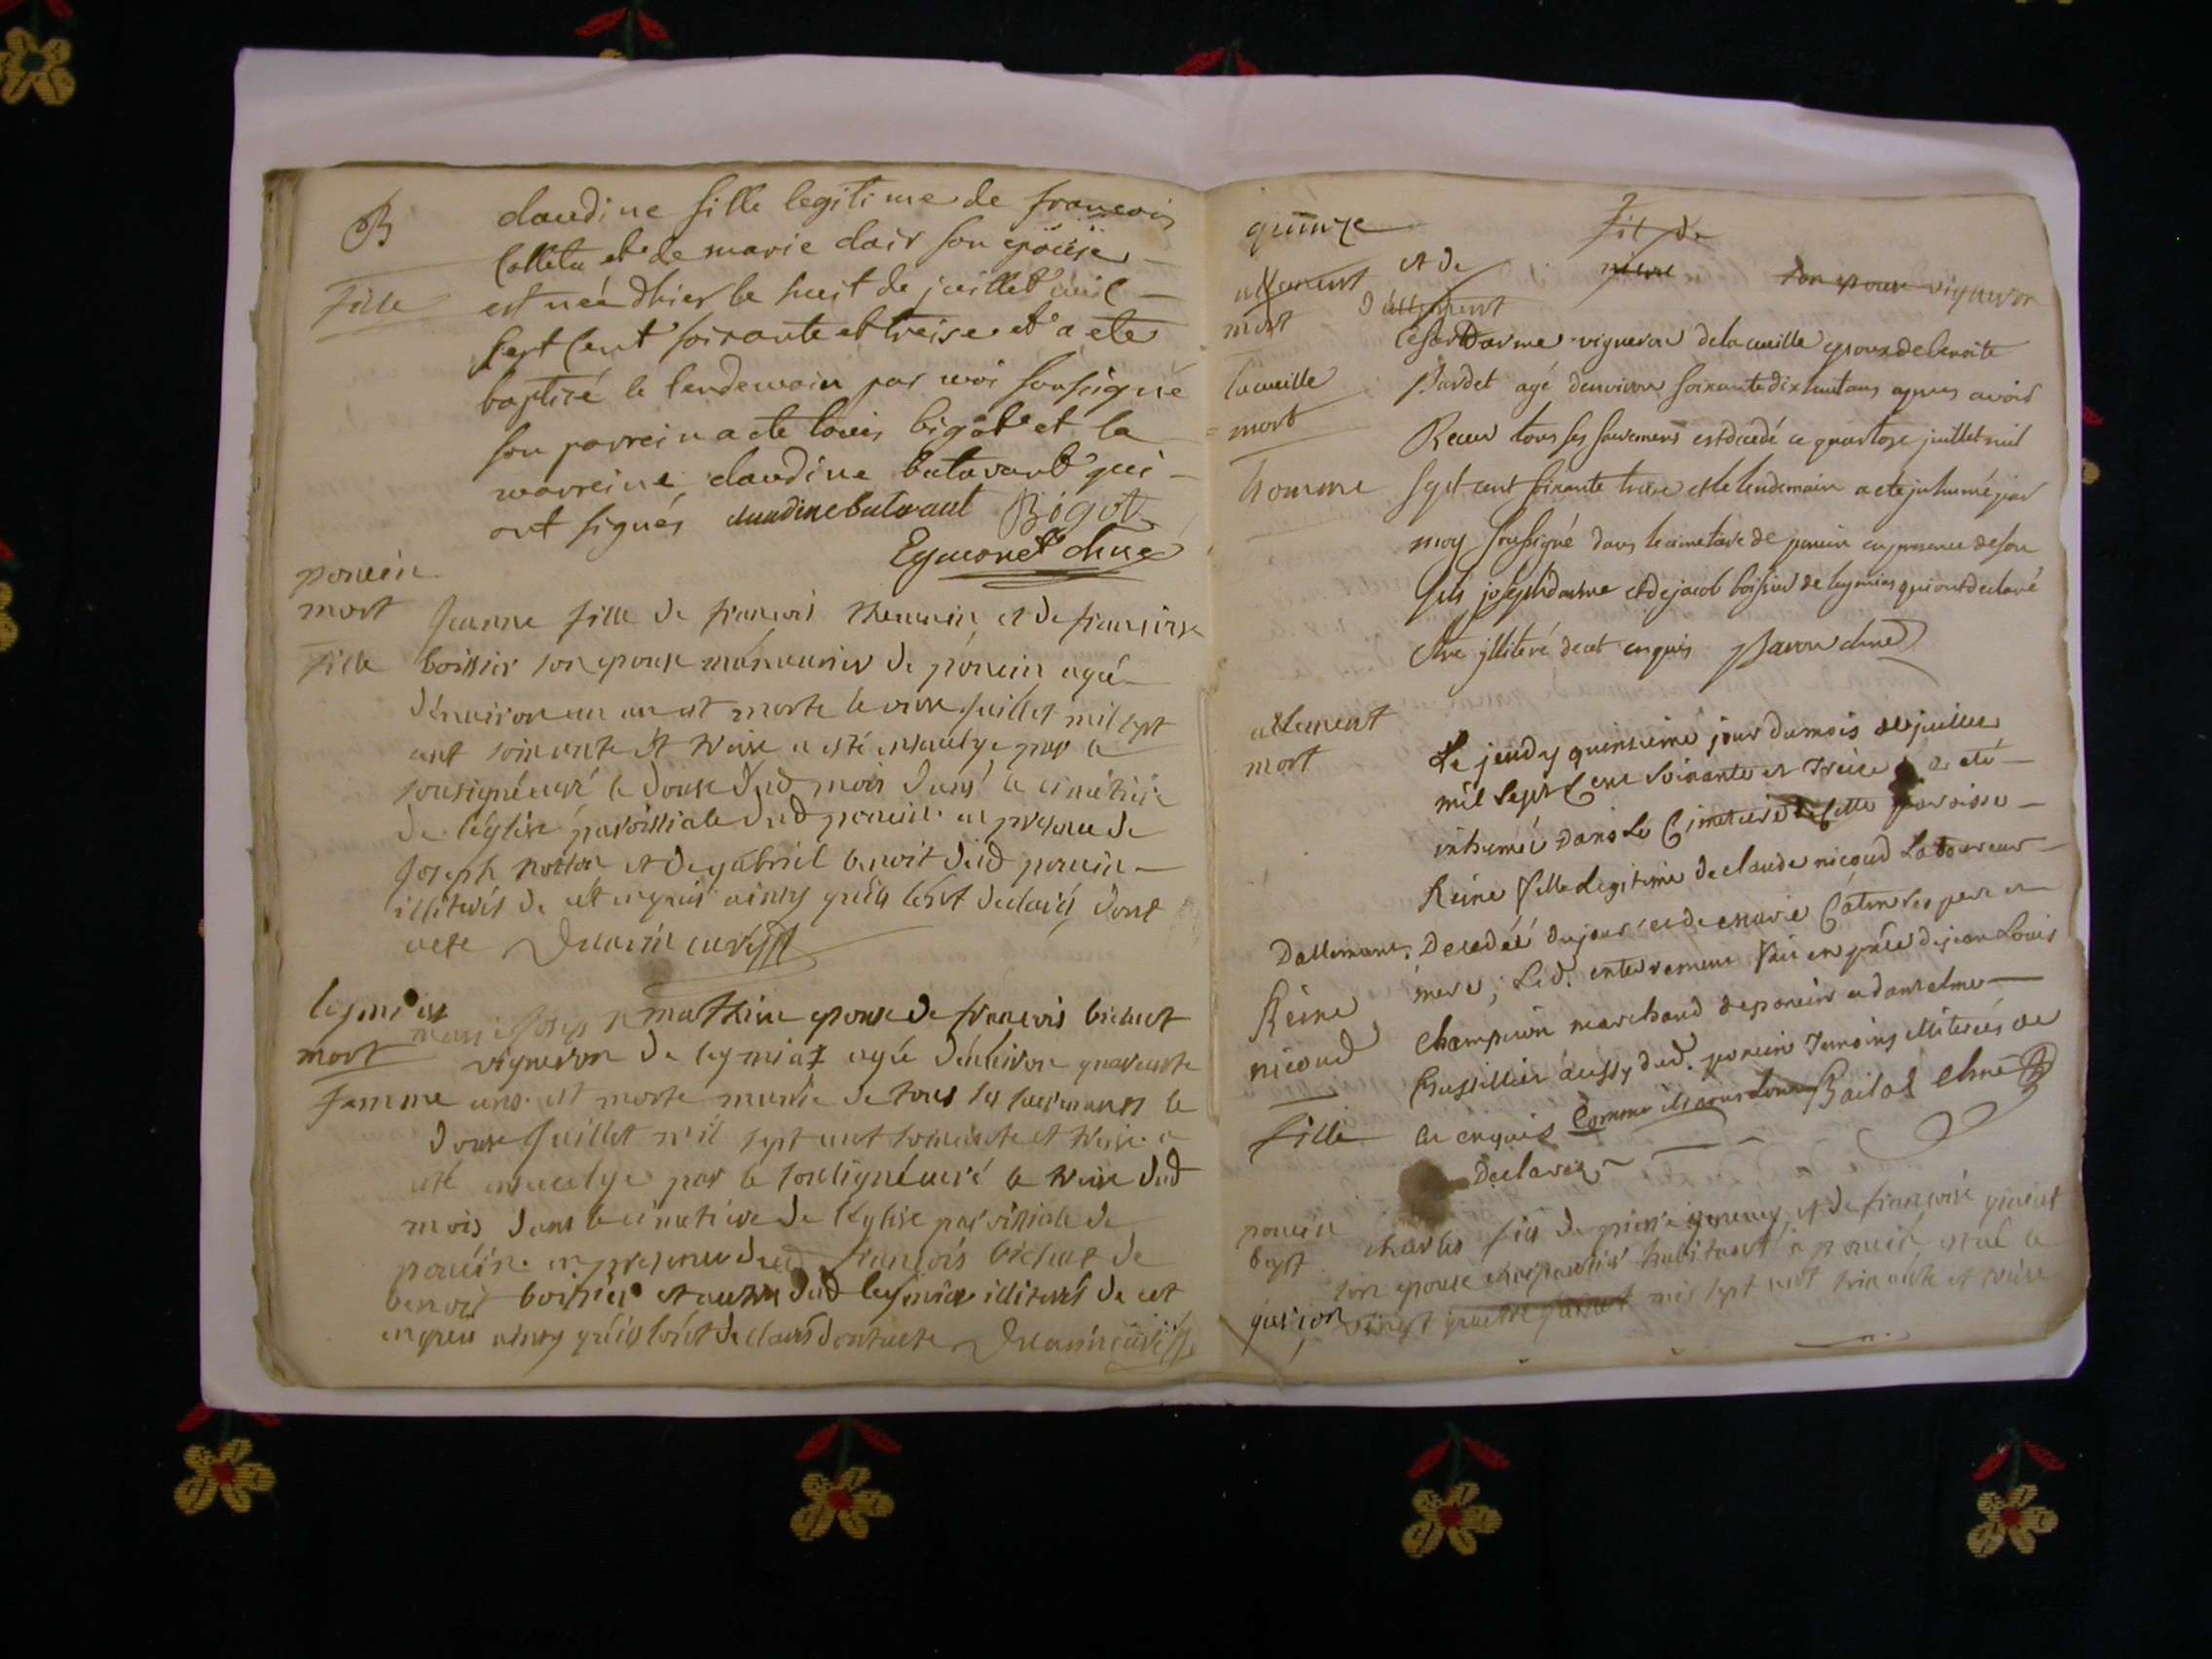 B
claudine fille legitime de francois
Colleta et de marie clair son epouse
fille
est née dhier le huit de juillet mil
sept cent soixante et treise et a ete
baptisé le lendemain par moi soussigné
son parrein a ete louis bigot et la
marreine claudine batavant qui
ont signés claudine batavant Bigot
Eymonet curé
poncin
mort
fille
Jeanne fille de francois thevenin et de francoise
boissier son epouse manouvrier de poncin agée
d'environ un an est morte le onse juillet mil sept
cent soixante et treise a esté ensevelye par le
sousigné curé le douse dud mois dans le cimetiere
de l'eglise paroissiale dud poncin en presence de
joseph et de gabriel benoit dud poncin
illiterés de ce enquis ainsy qu'ils l'ont declarés dont
acte
leymiat
mort
femme
mathieu epouse de francois bichat
vigneron de leymiat agée d'environ quarante
ans est morte munie de tous les sacremants le
douse juillet mil sept cent soixante et treise a
esté ensevelye par le sousigné curé le treise dud
mois dans le cimetiere de l'eglise paroissiale de
poncin en presence dud francois bichat de
benoit boissier et autre dud leymiat illiterés de cet
enquis ainsy qu'ils l'ont declarés dont acte
quinze
fil de
allement et de son epouse vigneron
mort d'allement
la cueille
mort
homme
Cesar Darme vigneron de la cueille epoux de benoite
Pardet agé d'environ soixante dix huit ans apres avoir
Receu tous ses sacremens est decedé ce quatorze juillet mil
sept cent soixante treise et le lendemain a ete inhumé par
moy soussigné dans le cimetiere de poncin en presence de son
fils joseph darme et de jacob boissier de leymiat qui ont declaré
etre illiteré de cet enquis
allement
mort
Le jeudy quinsieme jour du mois de juillet
mil sept Cent soixante et treise a eté
inhumée dans le Cimetiere de cette paroisse
Reine fille Legitime de claude nicoud Laboureur
Dallement, Decedée du jour et de marie Catin ses pere et
mere; Led. enterrement fait en pnce de jean Louis
Reine
nicoud
fille
Champion marchand de poncin et d'anselme
aussy dud. poncin Temoins illiterés de
ce enquis Comme ils nous l'ont
Declaré
poncin
bapt
garçon
charles fils de pierre et de francoise
son epouse charpantier habitant a poncin est né le
vingt quatre juillet mil sept cent soixante et treise